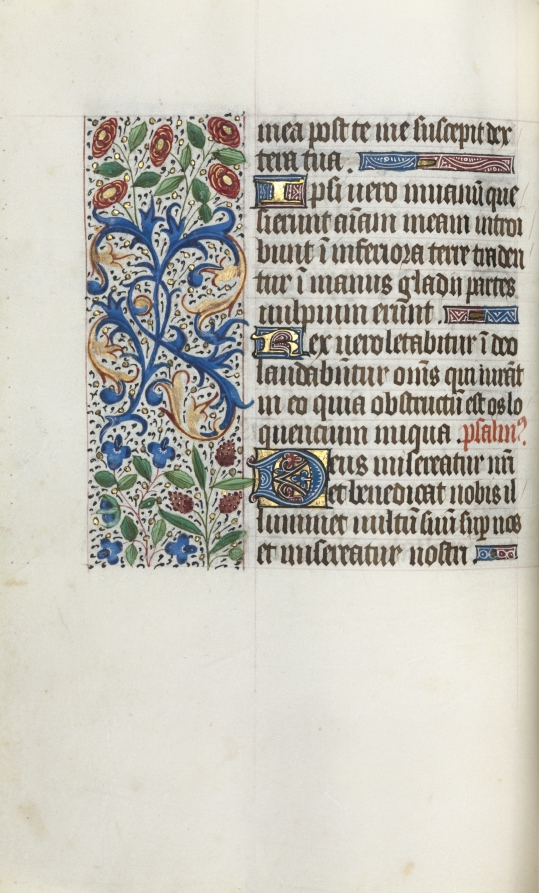 mea post te me suscepit dex
tera tua.
Ipsi uero in uanū que
sierunt aīam meam introi
bunt ī inferiora terre traden
tur ī manus gladij partes
uulpium erunt
Rex uero letabitur ī deo
laudabūtur om̄s qui iurāt
in eo quia obstructū est os lo
quencium iniqua. psalmꝰ
Deus misereatur nr̄i
et benedicat nobis il
luminet uultū suū sup nos
et misereatur nostri